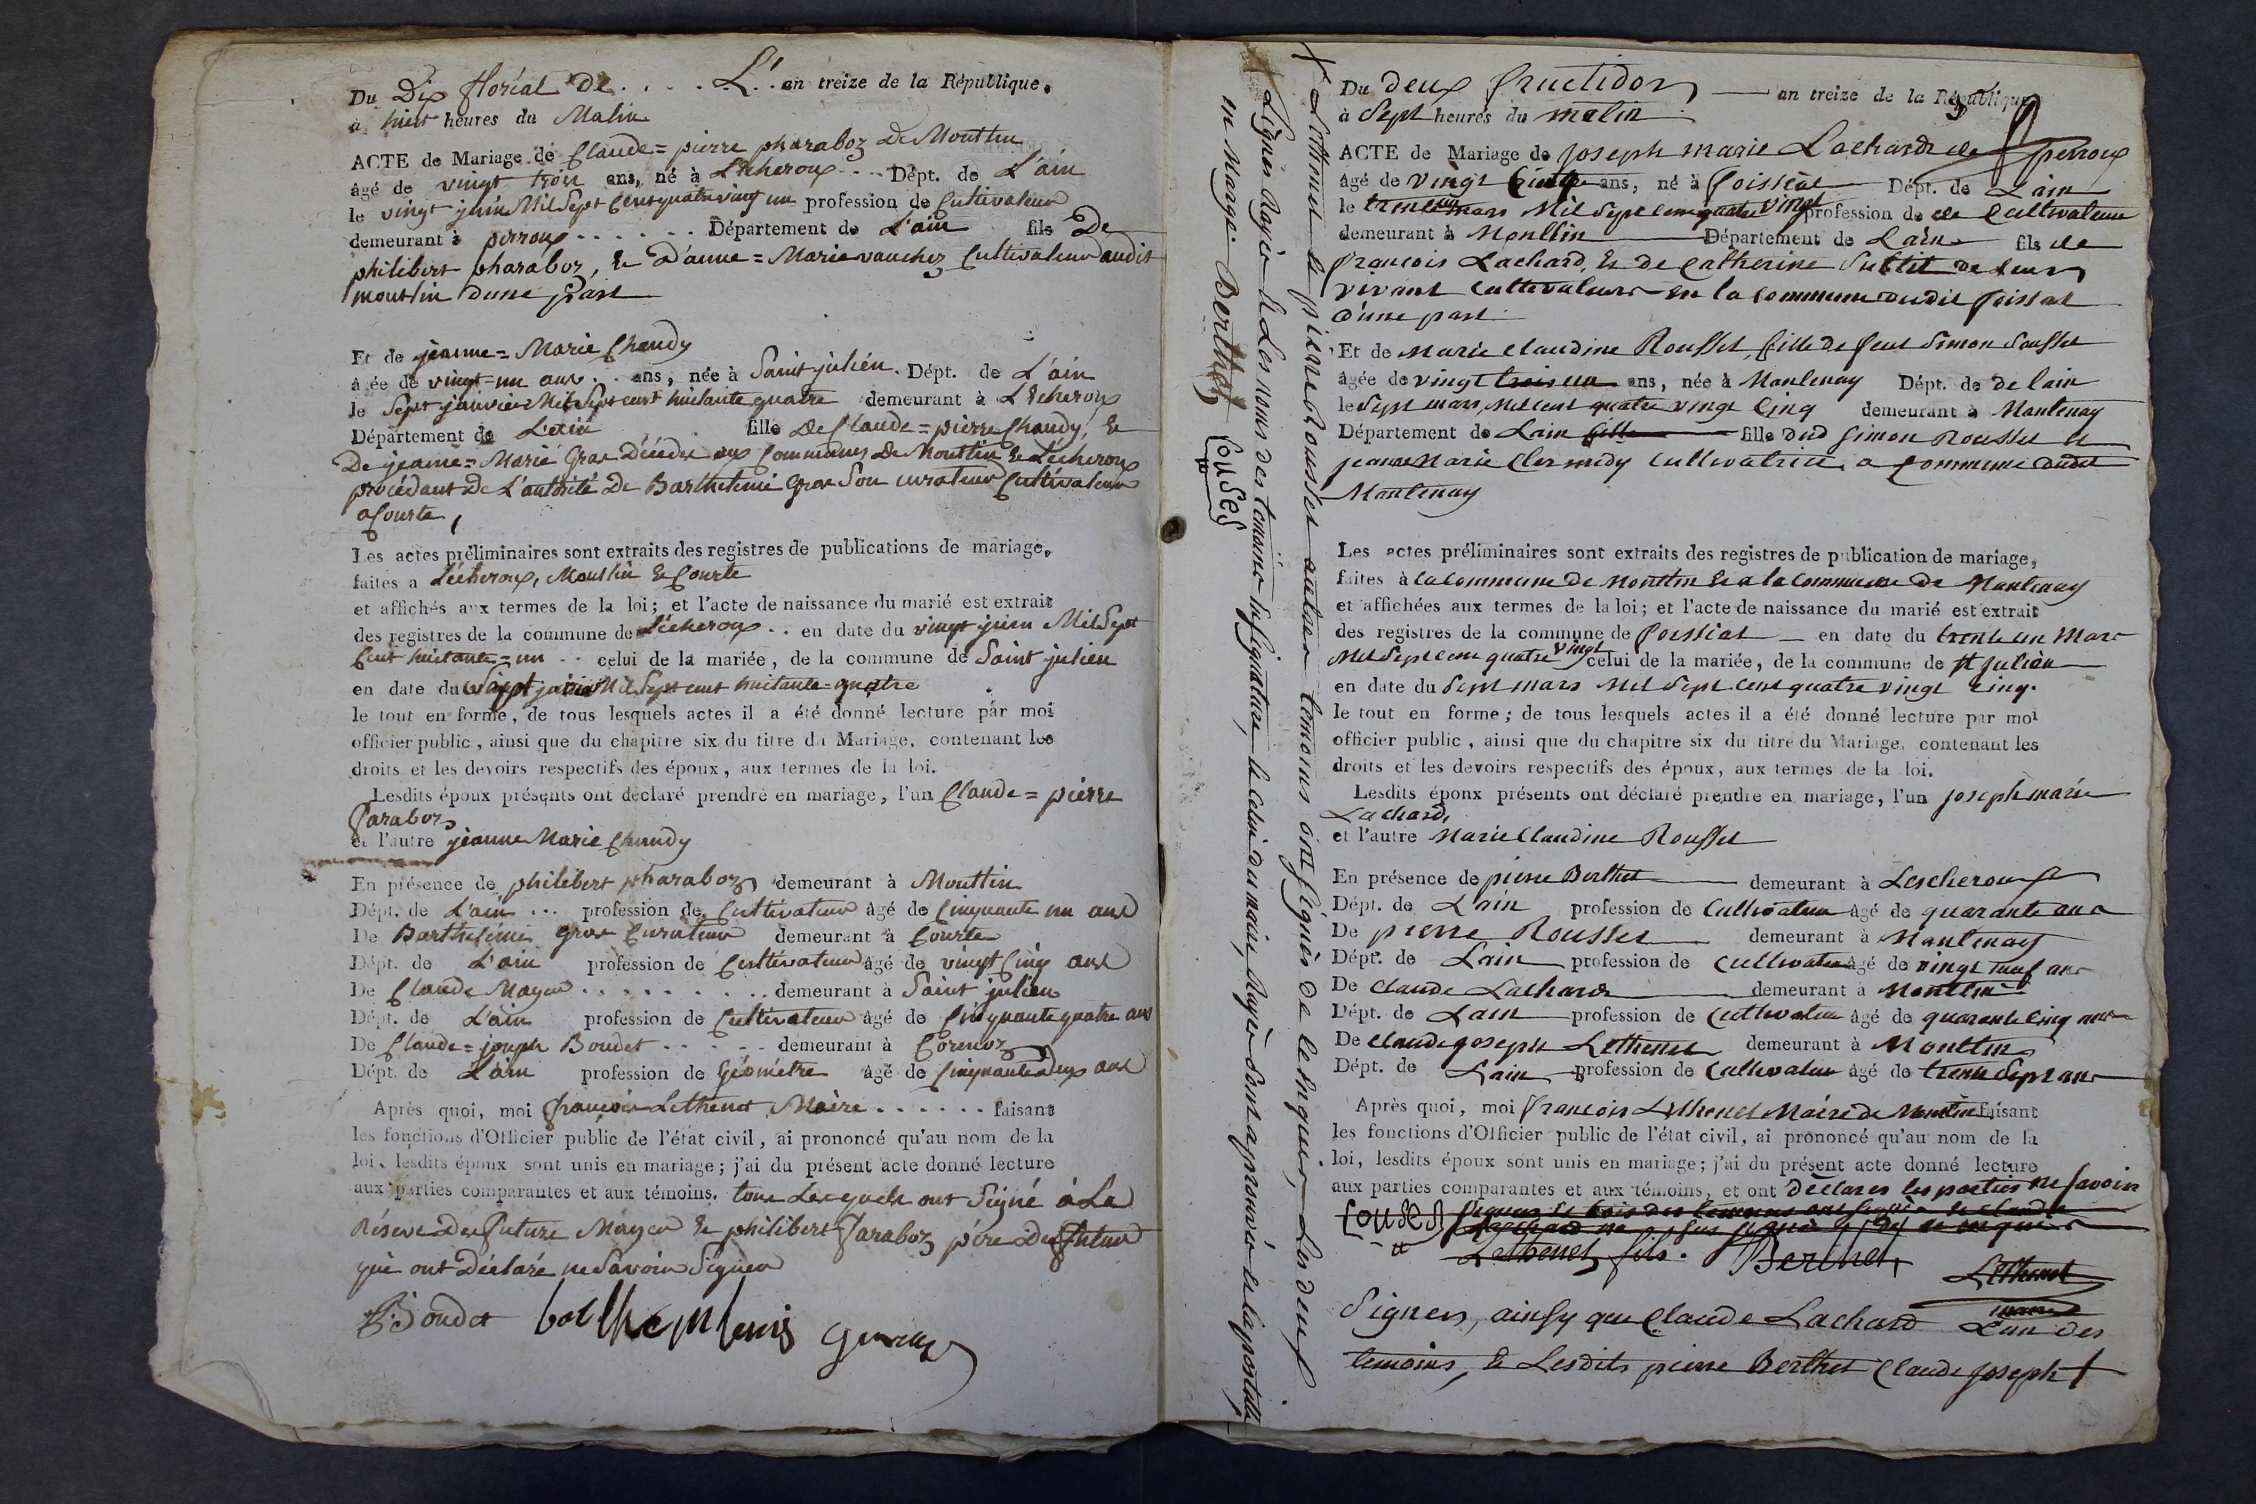 Du Dix floréal de . . . . L' . an treize de la République.
à huit heures du Matin
ACTE de Mariage de Claude = pierre pharaboz De Montlin
âgé de vingt trois ans, né à Lécheroux - - - Dépt. de L'ain
le vingt juin Mil Sept Cent quatre vingt un profession de Cultivateur
demeurant à perroux . . . . . . Département de L'ain fils De
philibert pharaboz, & D'anne = Marie vauchez Cultivateur audit
Montlin d'une Part
Et de jeanne = Marie Chaudy
âgée de vingt = un ans . . ans, née à Saint julien. Dépt. de L'ain
le Sept janvier Mil Sept cent huitante quatre demeurant à Lécheroux
Département de L'ain fille De Claude = pierre Chaudy, &
De jeanne = Marie Gros Décédés aux Communes De Montlin & Lécheroux
procédant De L'autorité De Barthelemi Gros Son curateur Cultivateur
a Courte,
Les actes préliminaires sont extraits des registres de publications de mariage,
faites a Lécheroux, Montlin & Courte
et affichés aux termes de la loi; et l'acte de naissance du marié est extrait
des registres de la commune de Lécheroux . . en date du vingt juin Mil Sept
Cent huitante = un . . celui de la mariée, de la commune de Saint julien
en date du Sept Mil Sept cent huitante = quatre
le tout en forme, de tous lesquels actes il a été donné lecture par moi
officier public, ainsi que du chapitre six du titre du Mariage, contenant les
droits et les devoirs respectifs des époux, aux termes de la loi.
Lesdits époux présents ont déclaré prendre en mariage, l'un Claude = pierre
Faraboz
et l'autre jeanne Marie Chaudy
En présence de philibert pharaboz demeurant à Montlin
Dépt. de L'ain . . . profession de Cultivateur âgé de Cinquante un ans
De Barthelemi Gros Curateur demeurant à Courte
Dépt. de L'ain profession de Cultivateur âgé de vingt Cinq ans
De Claude Mayeu . . . . . . . . . demeurant à Saint julien
Dépt. de L'ain profession de Cultivateur âgé de Cinquante quatre ans
De Claude = joseph Boudet - - - - - demeurant à
Dépt. de L'ain profession de Géométre âgé de Cinquante Deux ans
Après quoi, moi François Lethenet, Maire . . . . . . faisant
les fonctions d'Officier public de l'état civil, ai prononcé qu'au nom de la
loi, lesdits époux sont unis en mariage; j'ai du présent acte donné lecture
aux parties comparantes et aux témoins. tous Lesquels ont Signé à La
Réserve Des future Mayeu & philibert Faraboz pére Du Futur
qui ont Déclaré ne Savoir Signer
Boudet
Lignes Rayées & Les noms des temoins de Signature, & celui du maire, Rayés Sont approuvés et l'apostille
en Marge. Berthet
Du deux fructidor — an treize de la République
à Sept heures du matin
ACTE de Mariage de joseph marie Lachard de perroux
âgé de vingt ans, né à foissiat Dépt. de Lain
le trente un mars Mil Sept cent quatre vingt profession de de Cultivateur
demeurant à Montlin Département de Lain fils de
françois Lachard, & de Catherine Subtil de leur
vivant cultivateurs en la commune dudit foissiat
d'une part.
Et de Marie Claudine Rousset, fille de feut Simon Rousset
âgée de vingt ans, née à Mantenay Dépt. de de lain
le Sept mars, Mil cent quatre vingt Cinq demeurant à Mantenay
Département de Lain fille — fille dud Simon Rousset et
jeanne Marie Clermidy cultivatrice a Commune dudit
Mantenay
Les actes préliminaires sont extraits des registres de publication de mariage,
faites à la Commune de Montlin & a la Commune de Mantenay
et affichées aux termes de la loi; et l'acte de naissance du marié est extrait
des registres de la commune de foissiat — en date du trente un Mars
Mil Sept cent quatre vingt celui de la mariée, de la commune de St julien
en date du Sept mars Mil Sept Cent quatre vingt cinq.
le tout en forme; de tous lesquels actes il a été donné lecture par moi
officier public, ainsi que du chapitre six du titre du Mariage, contenant les
droits et les devoirs respectifs des époux, aux termes de la loi.
Lesdits époux présents ont déclaré prendre en mariage, l'un joseph marie
Lachard,
et l'autre Marie Claudine Rousset
En présence de pierre Berthet demeurant à Lescheroux
Dépt. de Lain profession de Cultivateur âgé de quarante ans
De pierre Rousset demeurant à Mantenay
Dépt. de Lain profession de Cultivateur âgé de vingt neuf ans
De Claude Lachard demeurant à Montlin
Dépt. de Lain profession de Cultivateur âgé de quarante Cinq ans
De Claude joseph Lethenet demeurant à Montlin
Dépt. de Lain profession de Cultivateur âgé de trente Sept ans
Après quoi, moi françois Lethenet Maire de Montlin faisant
les fonctions d'Officier public de l'état civil, ai prononcé qu'au nom de la
loi, lesdits époux sont unis en mariage; j'ai du présent acte donné lecture
aux parties comparantes et aux témoins, et ont déclarés les parties ne Savoir
Signer & trois des temoins ont signés & Claude
Lethenet fils. Berthet,
Lethenet
maire
Signer, ainsy que Claude Lachard L'un des
temoins, & Lesdits pierre Berthet Claude joseph +
+ Lethenet & pierre Rousset autres temoins ont signés de ce enquis, Les deux